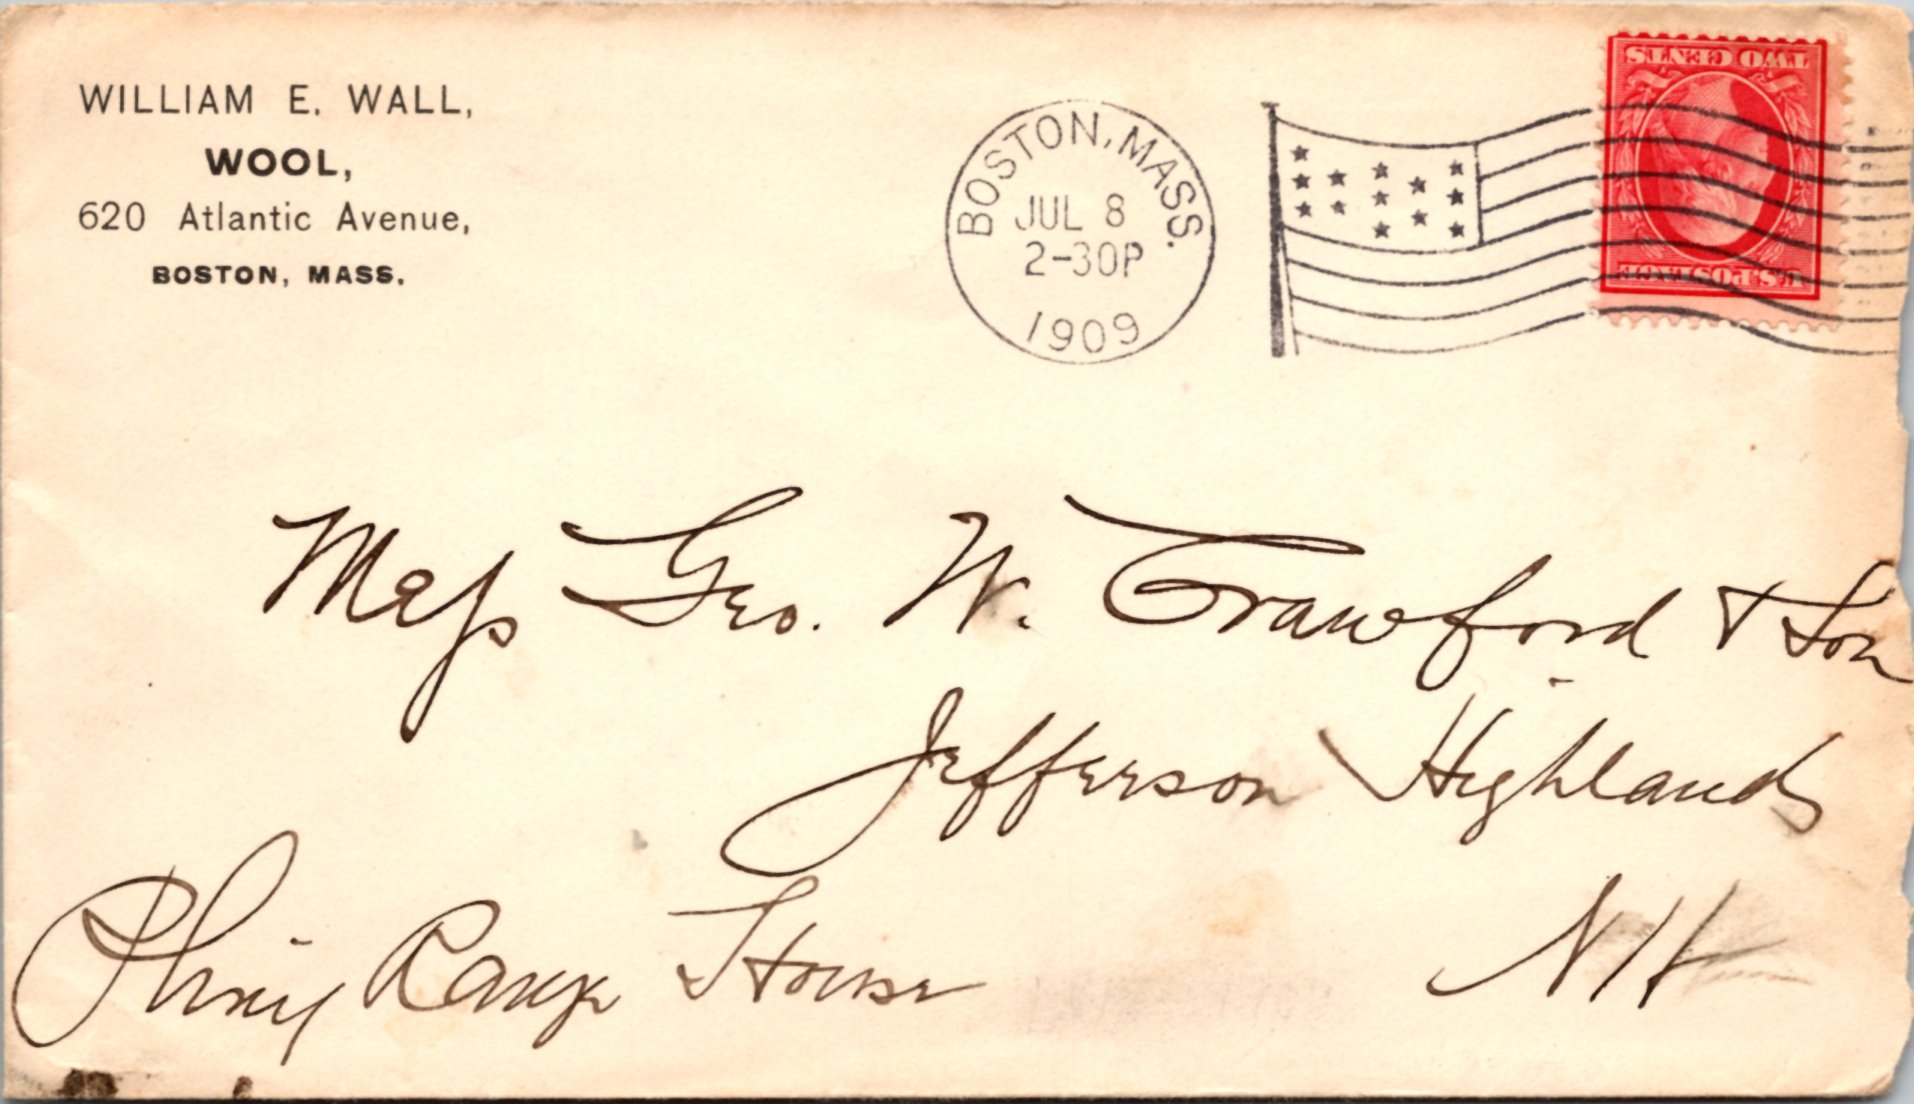 WILLIAM E. WALL,
WOOL,
620 Atlantic Avenue,
BOSTON, MASS.
BOSTON, MASS.
JUL 8
2-30P
1909
TWO CENTS
U.S. POSTAGE
Mess Geo. W. Crawford & Son
Jefferson Highlands
N H
Pliny Range House